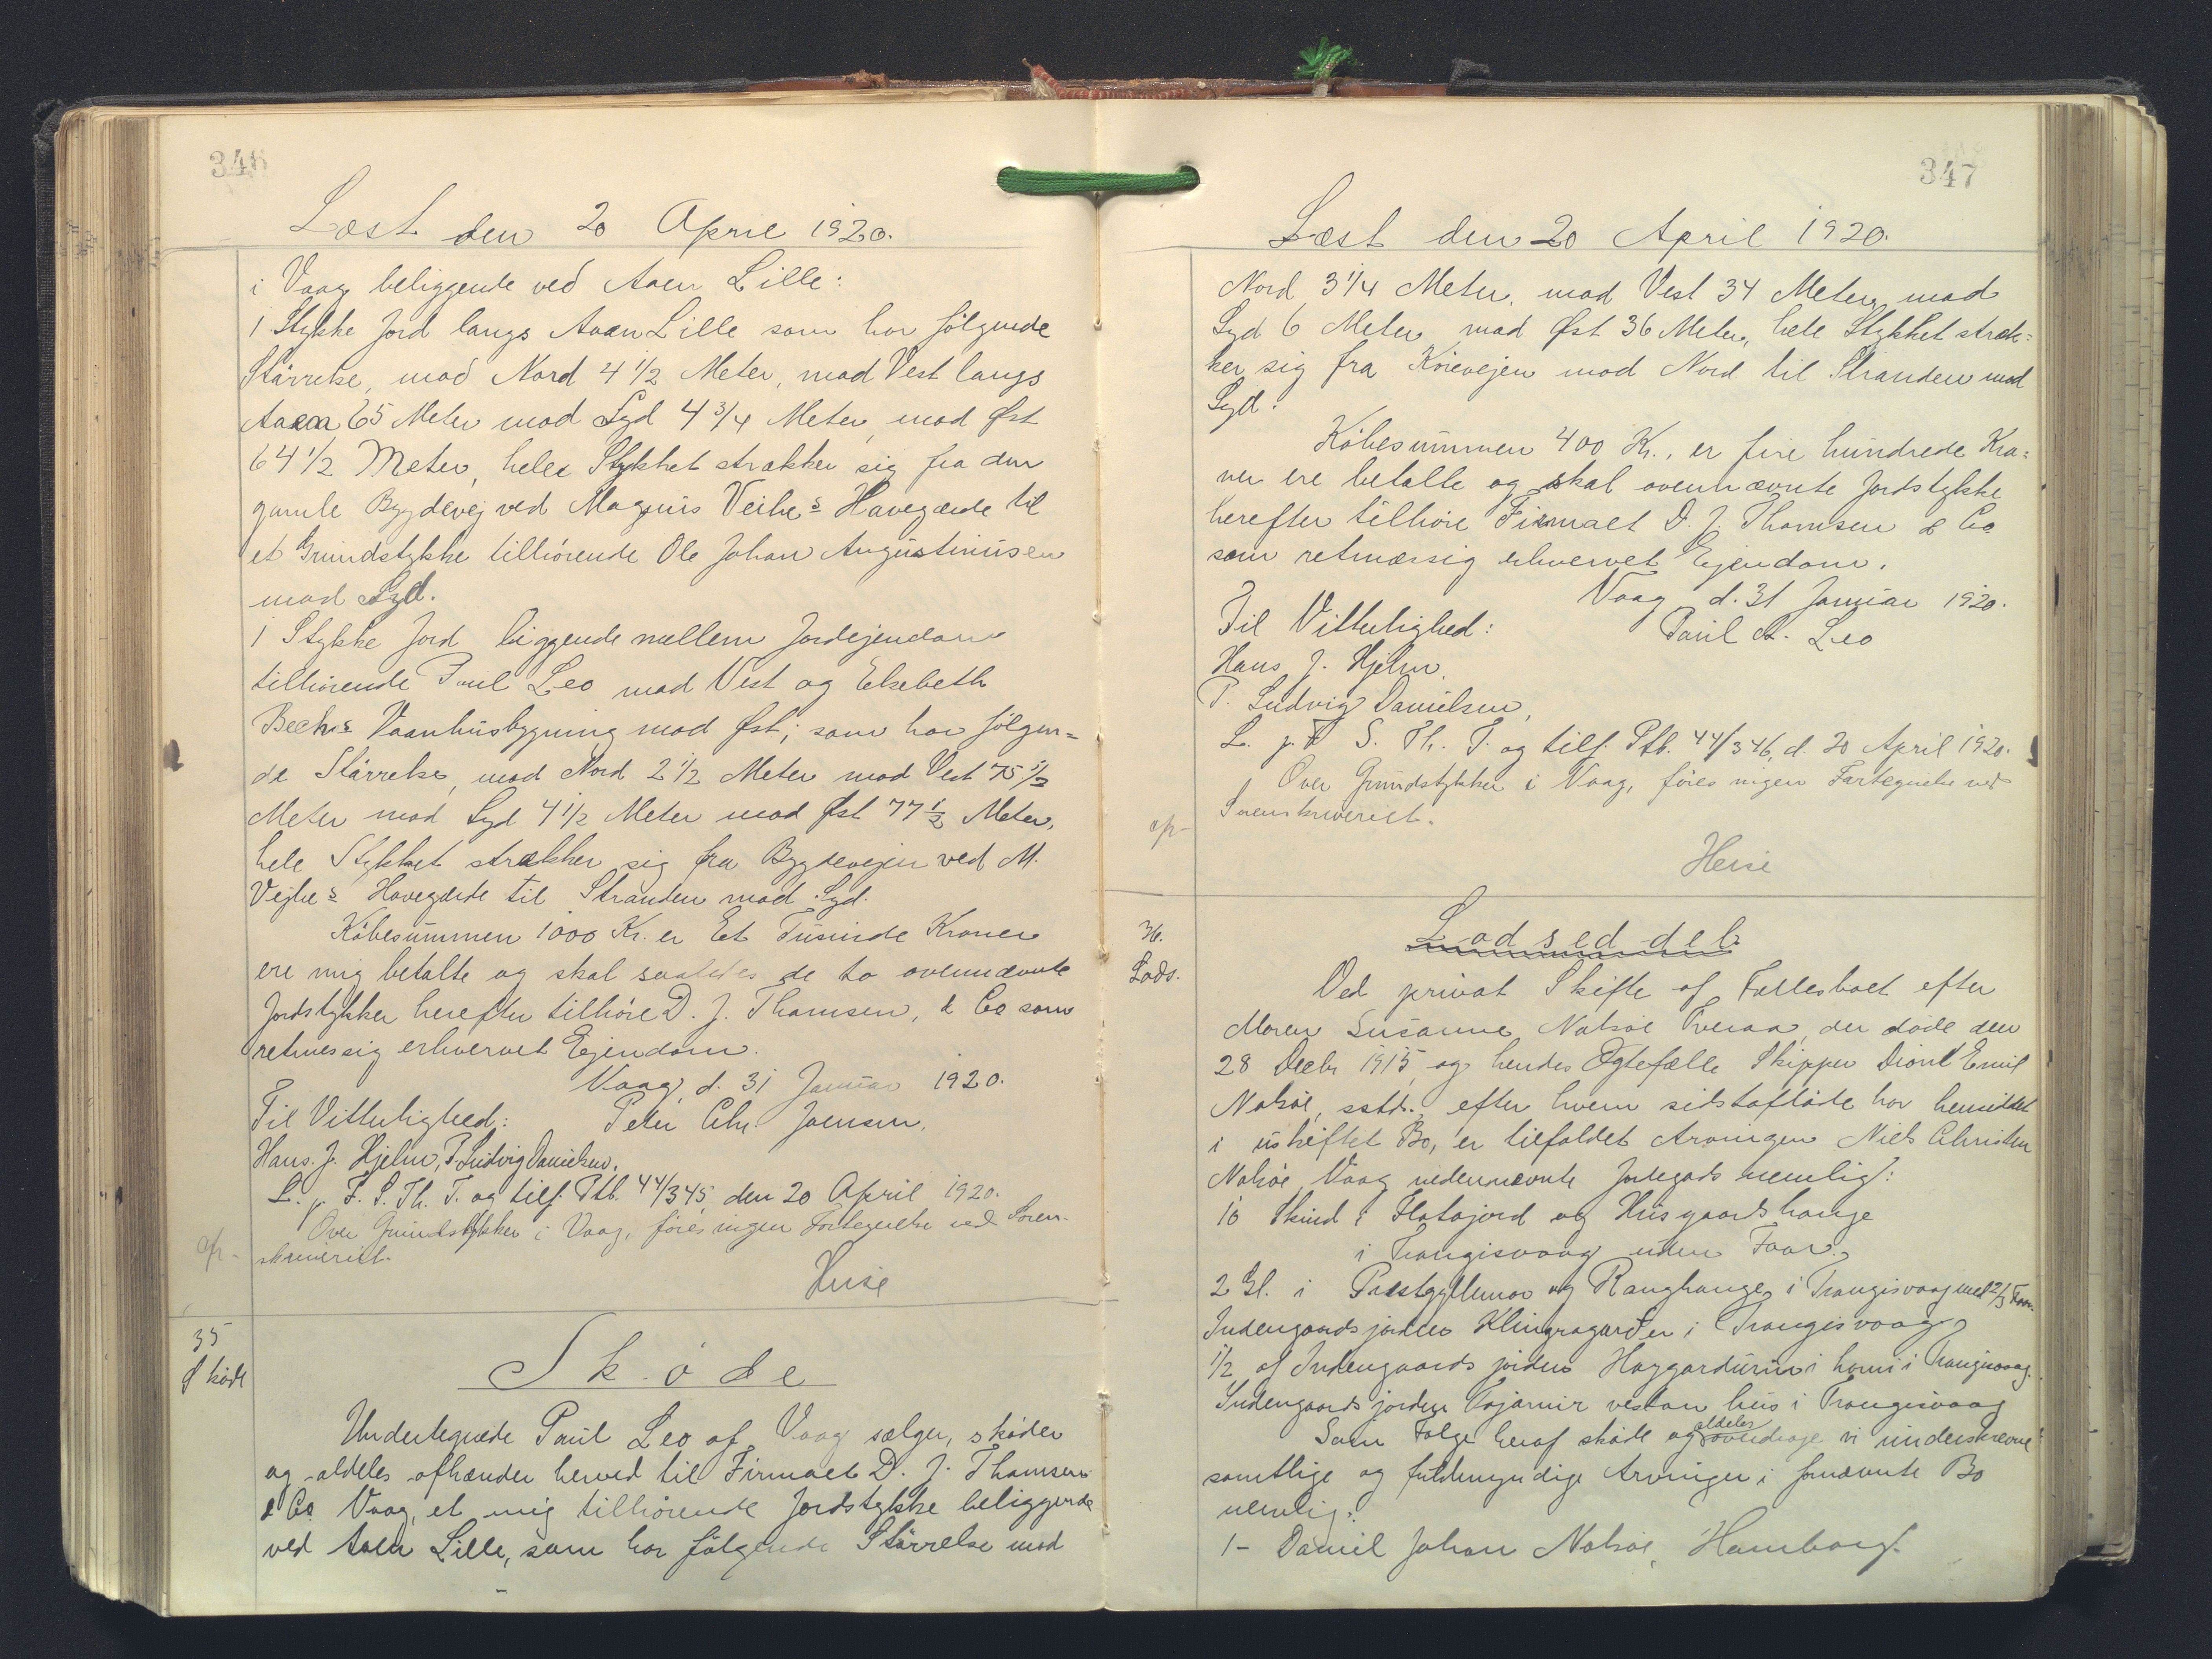 346
Læst den 20 April 1920.
i Vaag beliggende ved Aaen Lille:
1 Stykke Jord langs Aaen Lille som har følgende
Størrelse, mod Nord 4 1/2 Meter, mod Vest langs
Aaen 65 Meter mod Syd 4 3/4 Meter, mod Øst
64 1/2 Meter, hele Stykket strækker sig fra den
gamle Bygdevej ved Magnus Veihe's Havegærde til
et Grundstykke tilhørende Ole Johan Augustinusen
mod Syd.
1 Stykke Jord liggende mellem Jordejendom
tilhørende Poul Leo mod Vest og Elsebeth
Bech's Vaanhusbygning mod Øst; som har følgen=
de Størrelse, mod Nord 2 1/2 Meter mod Vest 75 1/2
Meter mod Syd 4 1/2 Meter mod Øst 77 1/2 Meter,
hele Stykket strækker sig fra Bygdevejen ved M.
Vejhe's Havegærde til Stranden mod Syd.
Købesummen 1000 Kr. er Et Tusinde Kroner
ere mig betalte og skal saaledes de to ovennævnte
Jordstykker herefter tilhøre D. J. Thomsen, & Co som
retmessig erhvervet Ejendom.
Vaag, d. 31 Januar 1920.
Til Vitterlighed: Peter Chr. Joensen,
Hans. J. Hjelm, P. Ludvig Danielsen,
L. p. F. S. Th. T. og tilf. Ptb. 44/345, den 20 April 1920.
Over Grundstykker i Vaag, føres ingen Fortegnelse ved Soren-
skriveriet.
35
Skøde
Skøde
Undertegnede Poul Leo af Vaag sælger, skøder
og aldeles afhænder herved til Firmaet D. J. Thomsen
& Co. Vaag, et mig tilhørende Jordstykke beliggende
ved Aaen Lille, som har følgende Størrelse mod
347
Læst den 20 April 1920.
Nord 3 1/4 Meter, mod Vest 34 Meter, mod
Syd 6 Meter mod Øst 36 Meter, hele Stykket stræk=
ker sig fra Kørevejen mod Nord til Stranden mod
Syd.
Købesummen 400 Kr., er fire hundrede Kro=
ner ere betalte og skal ovennævnte Jordstykke
herefter tilhøre Firmaet D. J. Thomsen & Co
som retmæssig erhvervet Ejendom.
Vaag d. 31 Januar 1920.
Til Vitterlighed: Poul A. Leo
Hans J. Hjelm,
P. Ludvig Danielsen,
L. p. F. S. Th. T. og tilf. Ptb. 44/346, d. 20 April 1920.
Over Grundstykker i Vaag, føres ingen Fortegnelse ved
Sorenskriveriet.
36.
Lods.
Lodseddel
Ved privat Skifte af Fællesboet efter
Moren Susanne Nolsøe Tveraa, der døde den
28 Decbr 1915, og hendes Ægtefælle Skipper Emil
Nolsøe, sstds., efter hvem sidstafdøde har hensiddet
i uskiftet Bo, er tilfaldet Arvingen Niels Christen
Nolsøe, Vaag nedennævnte Jordegods nemlig:
10 Skind i Flatajord og Husgaards hauge
i Trangisvaag uden Faar.
2 Gl. i og i Trangisvaag med 2/3 Faar.
Indengaards jorden i Trangisvaag
1/2 af Indengaards jorden i Trangisvaag.
Indengaards jorden vestan hus i Trangisvaag
Som Følge heraf skøde og aldeles overdrage vi underskrevne
samtlige og fuldmyndige Arvinger i fornævnte Bo
nemlig:
1 - Daniel Johan Nolsøe,